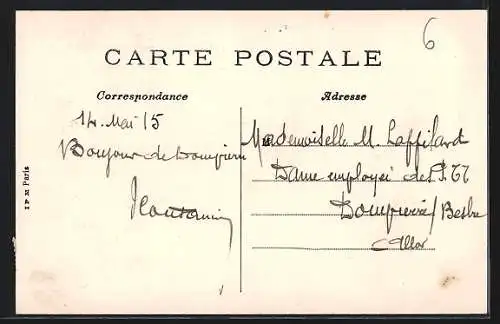 6
CARTE POSTALE
Correspondance
Adresse
14 Mai 15
Bonjour de Dompierre
Mademoiselle M. Laffilard
Dame employée des P.TT
Dompierre s/ Besbre
Allier
Paris